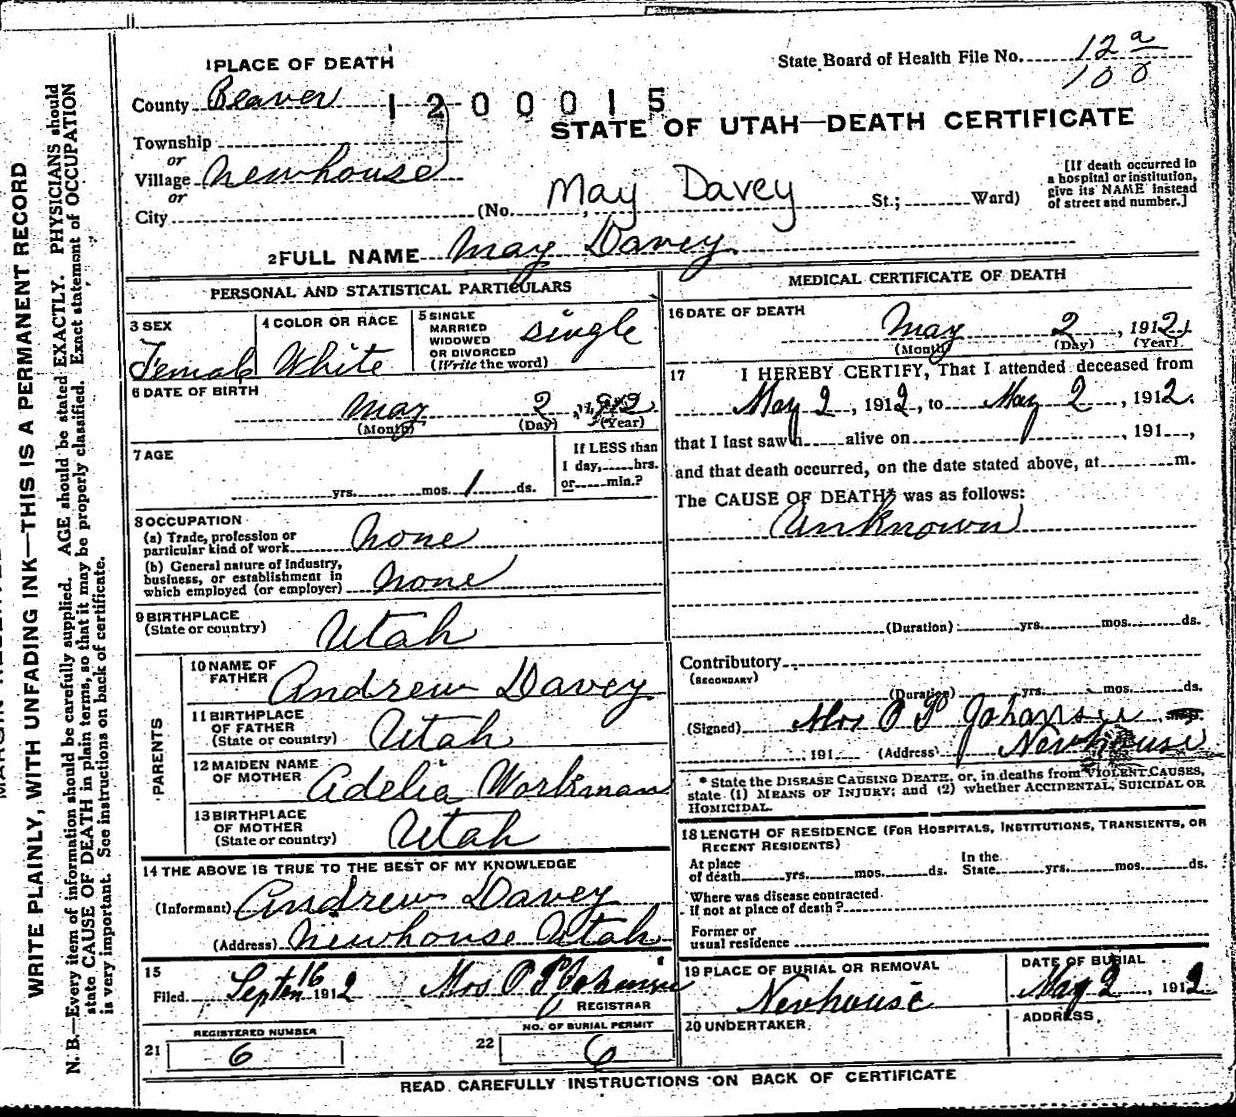 1 PLACE OF DEATH
State Board of Health File No. 12 a
100
County Beaver 1200015
STATE OF UTAH—DEATH CERTIFICATE
Township
or
Village Newhouse
or
City (No. May Davey St.; Ward)
[If death occurred in
a hospital or institution,
give its NAME instead
of street and number.]
2 FULL NAME May Davey
PERSONAL AND STATISTICAL PARTICULARS
3 SEX
Female
4 COLOR OR RACE
White
5 SINGLE
MARRIED
WIDOWED
OR DIVORCED
(Write the word)
single
6 DATE OF BIRTH
May 2
(Month) (Day) (Year)
7 AGE
yrs. mos. 1 ds.
If LESS than
1 day, hrs.
or min.?
8 OCCUPATION
(a) Trade, profession or
particular kind of work none
(b) General nature of Industry,
business, or establishment in
which employed (or employer) none
9 BIRTHPLACE
(State or country) Utah
PARENTS
10 NAME OF
FATHER Andrew Davey
11 BIRTHPLACE
OF FATHER
(State or country) Utah
12 MAIDEN NAME
OF MOTHER Adelia Workman
13 BIRTHPLACE
OF MOTHER
(State or country) Utah
14 THE ABOVE IS TRUE TO THE BEST OF MY KNOWLEDGE
(Informant) Andrew Davey
(Address) Newhouse Utah
15
Filed Septem 16 1912 Mrs O P Johansen
REGISTRAR
REGISTERED NUMBER
21 6
NO. OF BURIAL PERMIT
22 6
MEDICAL CERTIFICATE OF DEATH
16 DATE OF DEATH
May 2, 1912
(Month) (Day) (Year)
17 I HEREBY CERTIFY, That I attended deceased from
May 2, 1912, to May 2, 1912.
that I last saw h alive on , 191 ,
and that death occurred, on the date stated above, at m.
The CAUSE OF DEATH* was as follows:
Unknown
(Duration) yrs. mos. ds.
Contributory
(SECONDARY)
(Duration) yrs. mos. ds.
(Signed) Mrs O P Johansen
, 191 (Address) Newhouse
* State the DISEASE CAUSING DEATH, or, in deaths from VIOLENT CAUSES,
state (1) MEANS OF INJURY; and (2) whether ACCIDENTAL, SUICIDAL OR
HOMICIDAL.
18 LENGTH OF RESIDENCE (FOR HOSPITALS, INSTITUTIONS, TRANSIENTS, OR
RECENT RESIDENTS)
At place
of death yrs. mos. ds.
In the
State yrs. mos. ds.
Where was disease contracted
if not at place of death?
Former or
usual residence
19 PLACE OF BURIAL OR REMOVAL
Newhouse
DATE OF BURIAL
May 2, 1912
20 UNDERTAKER
ADDRESS
READ CAREFULLY INSTRUCTIONS ON BACK OF CERTIFICATE
WRITE PLAINLY, WITH UNFADING INK—THIS IS A PERMANENT RECORD
N. B.—Every item of information should be carefully supplied. AGE should be stated EXACTLY. PHYSICIANS should
state CAUSE OF DEATH in plain terms, so that it may be properly classified. Exact statement of OCCUPATION
is very important. See instructions on back of certificate.